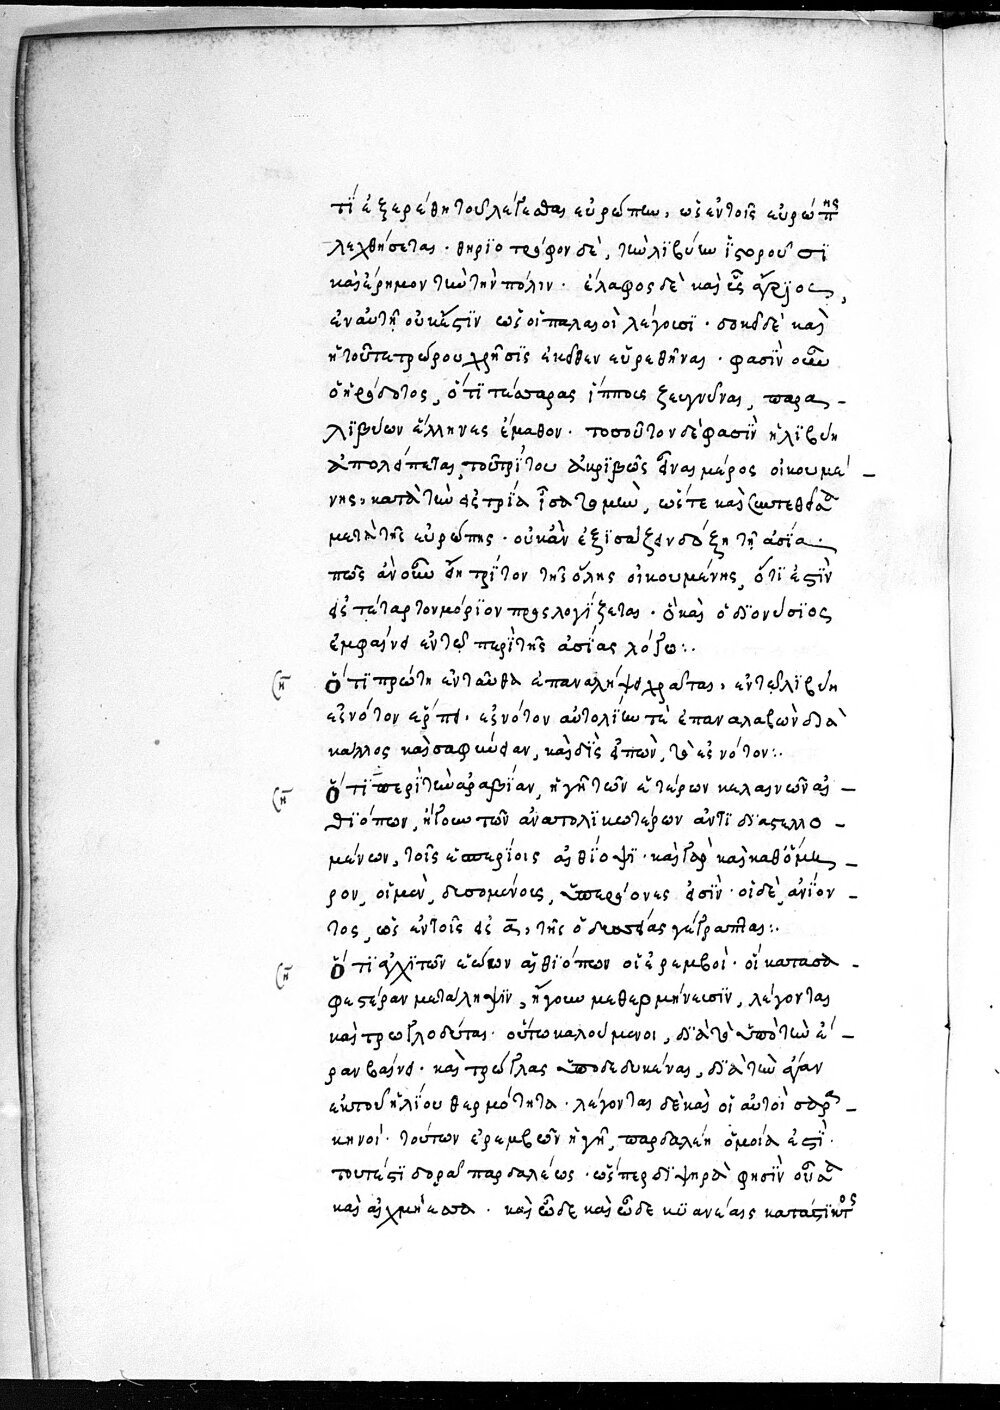 τί ἐξερέθη τοῦ λέγεσθαι εὐρώπην, ὡς ἐν τοῖς εὐρώπης
λεχθήσεται. θηριοτρόφον δὲ, τὴν λιβύην ἱστοροῦσι
καὶ ἔρημον τὴν πόλιν. ἔλαφος δὲ καὶ ὗς ἄγριος,
ἐν αὐτῆ οὐκ ἔστιν ὡς οἱ παλαιοὶ λέγουσι. δοκεῖ δὲ καὶ
ἡ τοῦ τετρώρου χρῆσις ἐκεῖθεν εὑρεθῆναι. φασὶν οὖν
ὁ ἡρόδοτος, ὅτι τέσσαρας ἵππους ζευγνύναι, παρα-
λιβύων ἕλληνες ἔμαθον. τοσοῦτον δέ φασὶν ἡ λιβύη
ἀπολείπεται, τοῦ τρίτου ἀκριβῶς εἶναι μέρος οἰκουμέ-
νης, κατὰ τὴν εἰς τρία ἴσα τομὴν, ὥστε καὶ συντεθεῖσα
μετὰ τῆς εὐρώπης. οὐκ ἂν ἐξισάζειν δόξη τῆ ἀσία.
πῶς ἂν οὖν εἴη τρίτον τῆς ὅλης οἰκουμένης, ὅτι ἐστὶν
εἰς τέταρτον μόριον προσλογίζεται. ὃ καὶ ὁ διονύσιος
ἐμφαίνει ἐν τῷ περὶ τῆς ἀσίας λόγῳ:.
Ὅτι πρώτη ἐνταῦθα ἐπαναλήψει χρᾶται, ἐν τῷ λιβύη
ἐς νότον ἕρπει. ἐς νότον αὐτολίην τὲ ἐπαναλαβὼν διὰ
κάλλος καὶ σαφήνειαν, καὶ δὶς εἰπὼν, τὸ ἐς νότον:.
Ὅτι περὶ τὴν ἀραβίαν, ἡ γῆ τῶν ἑτέρων κελαινῶν αἰ-
θιόπων, ἤγουν τῶν ἀνατολικωτέρων ἀντιδιαστελλο-
μένων, τοῖς ἑσπερίοις αἰθίοψι. καὶ γὰρ καὶ καθ' ὅμη-
ρον, οἱ μὲν, δυσομένους, ὑπερίονες εἰσὶν. οἱ δὲ, ἀνιόν-
τος, ὡς ἐν τοῖς εἰς α, τῆς ὀδυσσείας γέγραπται:.
Ὅτι ἀγχι τῶν ἑώων αἰθιόπων οἱ ἐρεμβοὶ. οἱ κατὰ σα-
φεστέραν μετάληψιν, ἤγουν μεθερμήνευσιν, λέγονται
καὶ τρωγλοδύται. οὕτω καλούμενοι, διὰ τὸ ὑπὸ τὴν ἔ-
ραν βαίνειν. καὶ τρώγλας ὑποδεδυκέναι, διὰ τὴν ἄγαν
ἐκ τοῦ ἡλίου θερμότητα. λέγονται δὲ καὶ οἱ αὐτοὶ σαρ-
κηνοί. τούτων ἐρεμβῶν ἡ γῆ, παρδαλέη ὁμοία ἐστί.
τουτέστι δορᾶ παρδάλεως. ὥσπερ διψηρὰ φησὶν οὖσα
καὶ αὐχμήεσσα. καὶ ὧδε καὶ ὧδε κυανέαις κατάστικτος